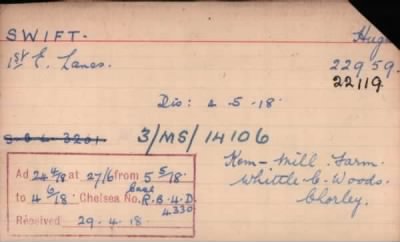 SWIFT. Hugh
1st E. Lancs. 22959.
22119
Dis: 4.5.18.
S.B.L. 3201 3/MS/14106
Kem-Mill Farm.
Whittle-C-Woods.
Chorley.
Ad 24 4/18 at 27/6 from 5 5/18.
to 4 6/18. Chelsea No. Case R.B.4.D.
4330
Received 29.4.18.